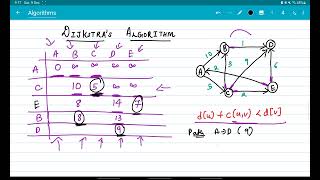 9:17 Sat, 9 Dec
Algorithms
DIJKSTRA'S ALGORITHM
A B C D E
A 0 ∞ ∞ ∞ ∞
C 10 5 ∞ ∞
E 8 14 7
B 8 13
D 9
A B C D E
10 1 2 3 9 6 5 2
d[u] + c(u,v) < d[v]
Path A→D (9)